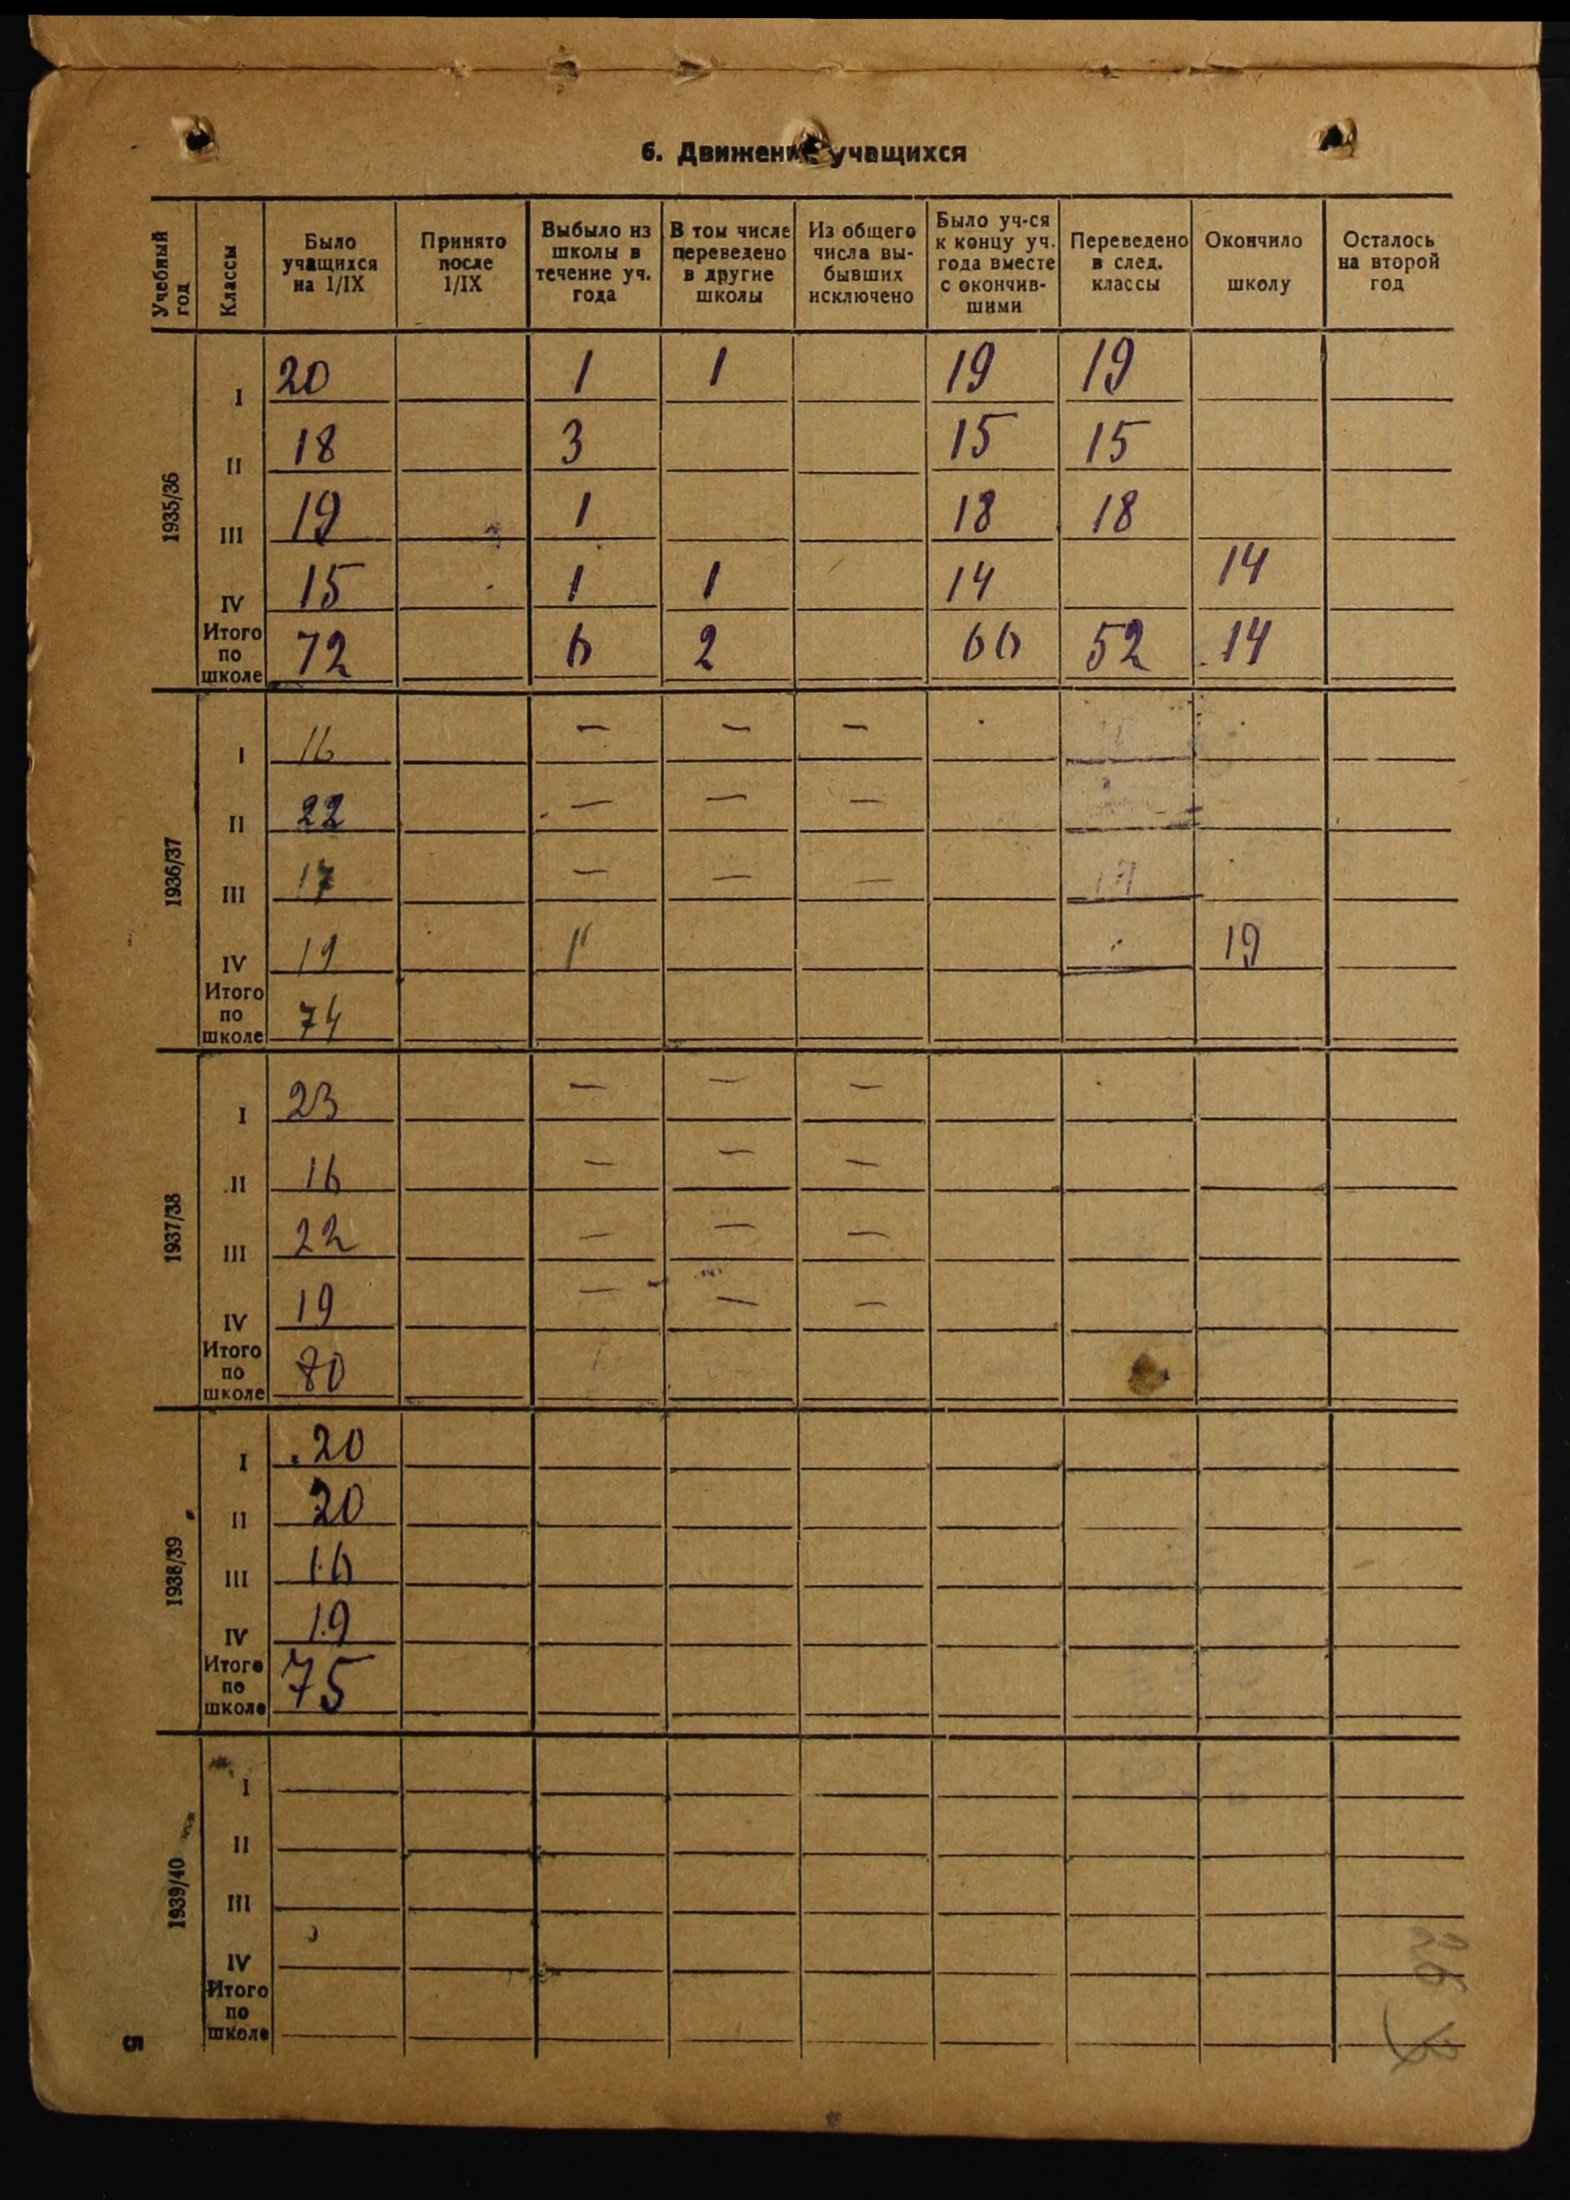 6. Движение учащихся
Учебный год | Классы | Было учащихся на 1/IX | Принято после 1/IX | Выбыло из школы в течение уч. года | В том числе переведено в другие школы | Из общего числа выбывших исключено | Было уч-ся к концу уч. года вместе с окончившими | Переведено в след. классы | Окончило школу | Осталось на второй год
1935/36
I 20 1 1 19 19
II 18 3 15 15
III 19 1 18 18
IV 15 1 1 14 14
Итого по школе 72 6 2 66 52 14
1936/37
I 16 — — —
II 22 — — —
III 17 — — —
IV 19 19
Итого по школе 74
1937/38
I 23 — — —
II 16 — — —
III 22 — — —
IV 19 — — —
Итого по школе 80
1938/39
I 20
II 20
III 16
IV 19
Итого по школе 75
1939/40
I
II
III
IV
Итого по школе
5